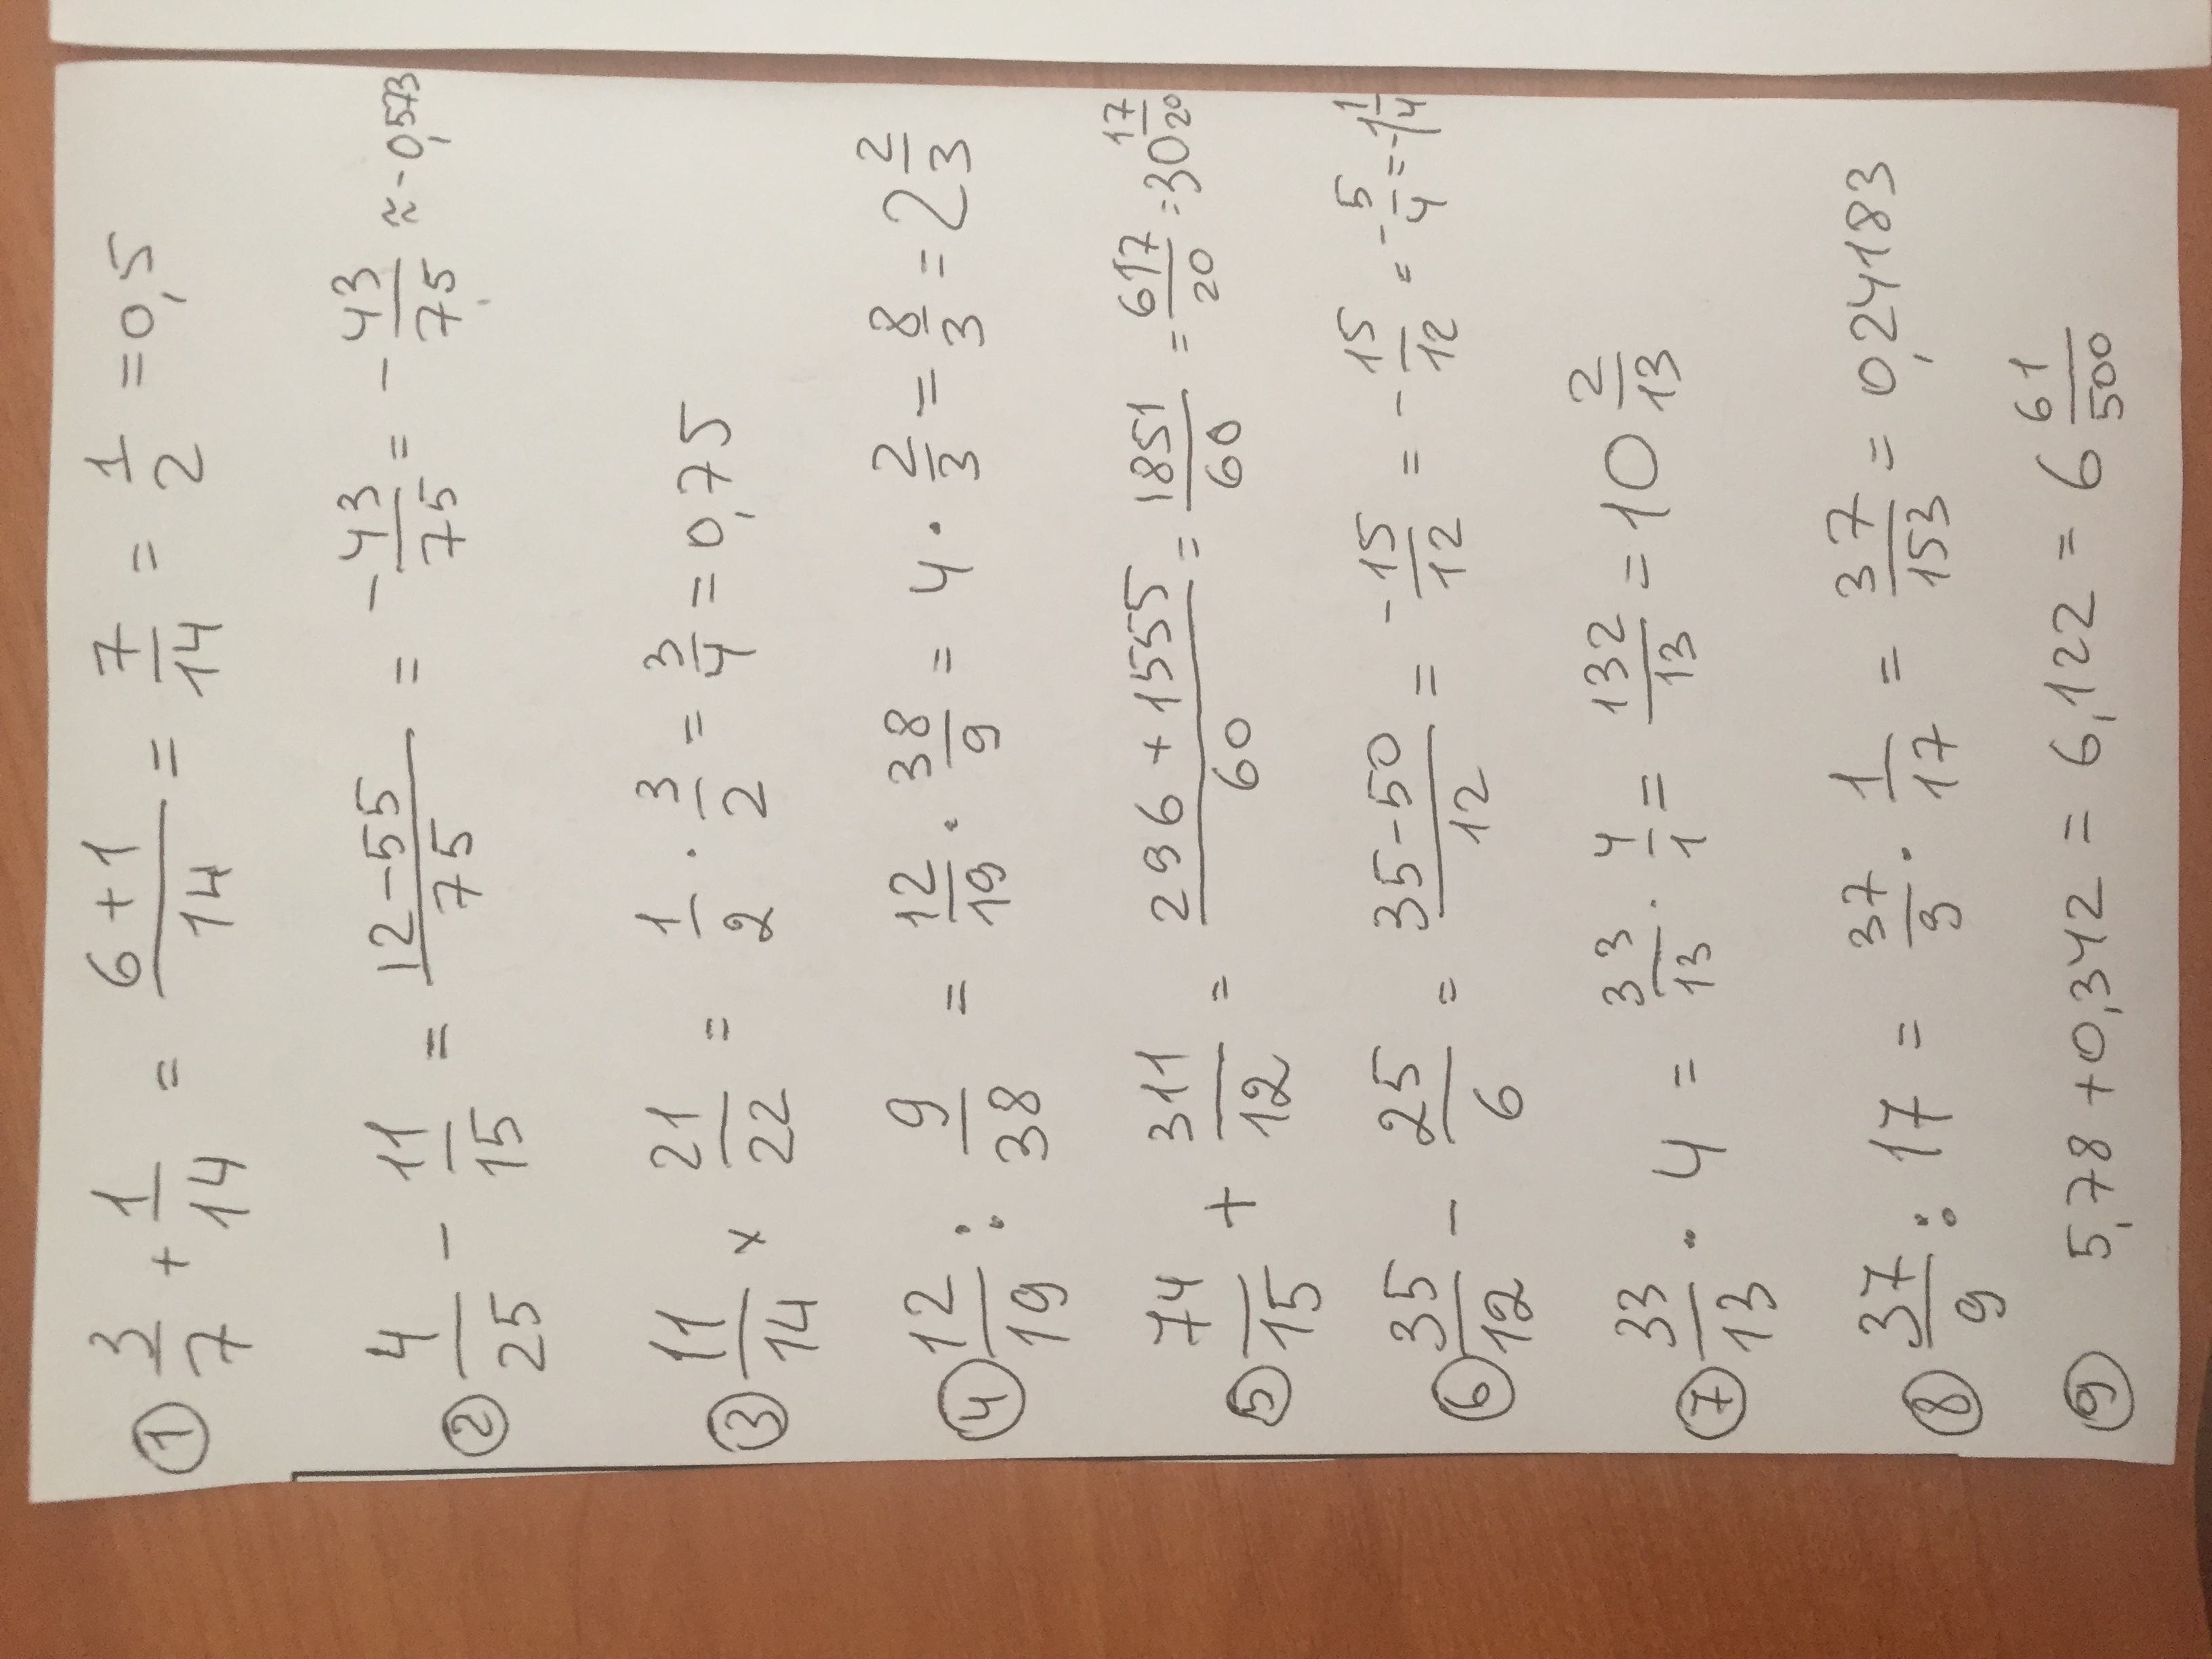 ① 3/7 + 1/14 = (6+1)/14 = 7/14 = 1/2 = 0,5
② 4/25 - 11/15 = (12-55)/75 = -43/75 = -43/75 ≈ -0,573
③ 11/14 × 21/22 = 1/2 · 3/2 = 3/4 = 0,75
④ 12/19 : 9/38 = 12/19 · 38/9 = 4 · 2/3 = 8/3 = 2 2/3
⑤ 74/15 + 311/12 = (296+1555)/60 = 1851/60 = 617/20 = 30 17/20
⑥ 35/12 - 25/6 = (35-50)/12 = -15/12 = -15/12 = -5/4 = -1 1/4
⑦ 33/13 · 4 = 33/13 · 4/1 = 132/13 = 10 2/13
⑧ 37/9 : 17 = 37/9 · 1/17 = 37/153 = 0,24183
⑨ 5,78 + 0,342 = 6,122 = 6 61/500